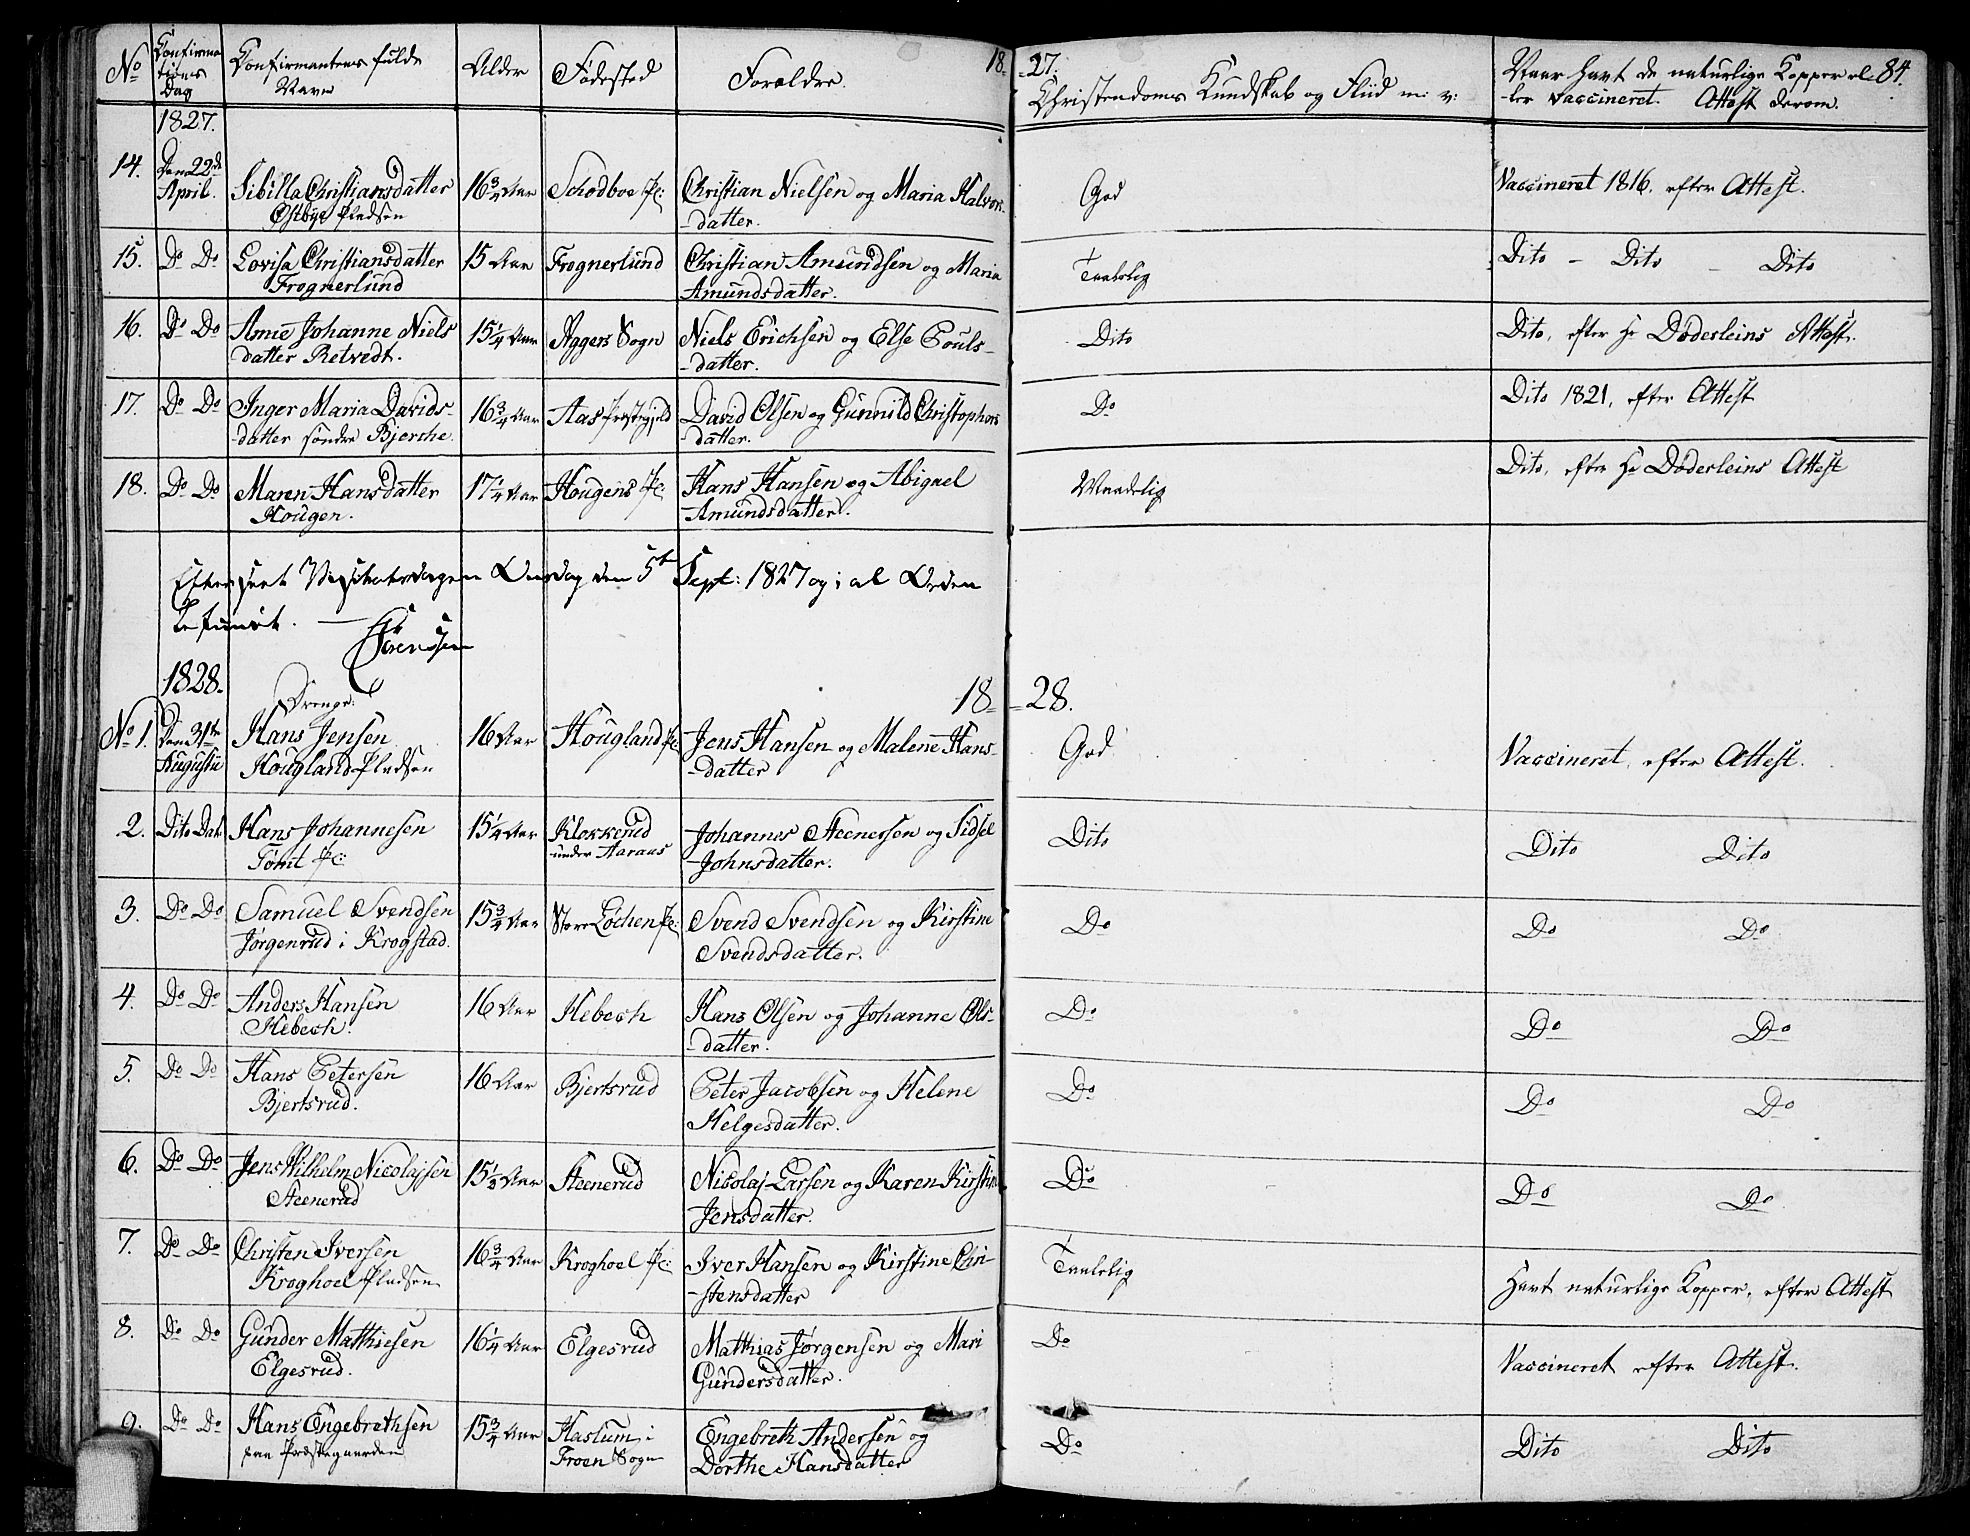 No Confirma- Confirmantens fulde Alder Fødested Forældre. 18- -27. Christendoms Kundskab og Fliid m: v: Naar havt de naturlige Kopper el- 84.
tions Navn -ler vaccineret. Attest derom.
Dag
1827.
14. Den 22de Sibilla Christiansdatter 16 3/4 Aar Schodboe Pl: Christian Nielsen og Maria Halvors- God Vaccineret 1816. efter Attest.
April. Østbye Pladsen -datter.
15. Do Do Lovisa Christiansdatter 15 Aar Frognerlund Christian Amundsen og Maria Taalelig Dito - Dito - Dito
Frognerlund Amundsdatter.
16. Do Do Anne Johanne Niels 15 1/4 Aar Aggers Sogn Niels Erichsen og Else Pouls- Dito Dito, efter Hr Døderleins Attest.
datter Retvedt. -datter.
17. Do Do Inger Maria Davids- 16 3/4 Aar Aas Præstegjeld David Olsen og Gunnild Christophers Do Dito 1821, efter Attest
-datter søndre Bjerche. -datter.
18. Do Do Maren Hansdatter 17 1/4 Aar Hougens Pl: Hans Hansen og Abigael Maadelig Dito, efter Hr Døderleins Attest
Hougen. Amundsdatter.
Efterseet Onsdag den 5te Sept: 1827 og i al Orden
befunden. Sørenssen
1828. Drenge: 18- -28.
No 1. Den 31te Hans Jensen 16 Aar Hougland Pl: Jens Hansen og Malene Hans- God Vaccineret, efter Attest.
Augustii Hougland-Pladsen -datter
2. Dito Dato Hans Johannesen 15 1/4 Aar Klokkerud Johannes Steenersen og Sidsel Dito Dito Dito
Tomt Pl: under Aaraas -Johnsdatter.
3. Do Do Samuel Svendsen 15 3/4 Aar Store Løchen Pl: Svend Svendsen og Kirstine Do Do Do
Jørgenrud i Krogstad. Svendsdatter.
4. Do Do Anders Hansen 16 Aar Hebech Hans Olsen og Johanne Ols- Do Do Do
Hebech. -datter.
5. Do Do Hans Petersen 16 Aar Bjertsrud Peter Jacobsen og Helene Do Do Do
Bjertsrud. Helgesdatter.
6. Do Do Jens Wilhelm Nicolajsen 15 1/2 Aar Steenerud Nicolaj Larsen og Karen Kirstin Do Do Do
Steenerud Jensdatter.
7. Do Do Christen Iversen 16 3/4 Aar Kroghoel Pl: Iver Hansen og Kirstine Chri- Taalelig Havt naturlige Kopper, efter Attest
Kroghoel Pladsen -stensdatter
8. Do Do Gunder Mathiesen 16 1/4 Aar Elgesrud Matthias Jørgensen og Mari Do Vaccineret efter Attest.
Elgesrud. Gundersdatter.
9. Do Do Hans Engebrethsen 15 3/4 Aar Haslum i Engebreth Andersen og Do Dito Dito
paa Præstegaarden Froen Sogn Dorthe Hansdatter